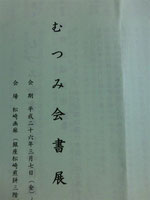 むつみ会書展
会期 平成二十六年三月七日(金)
会場 松崎画廊(銀座松崎煎餅二階